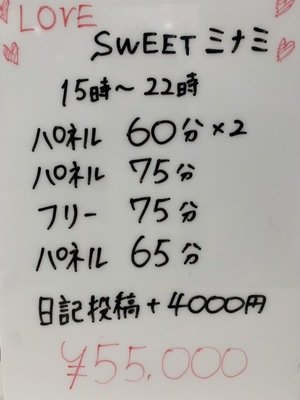 LOVE
SWEETミナミ
15時〜22時
パネル 60分×2
パネル 75分
フリー 75分
パネル 65分
日記投稿+4000円
¥55,000